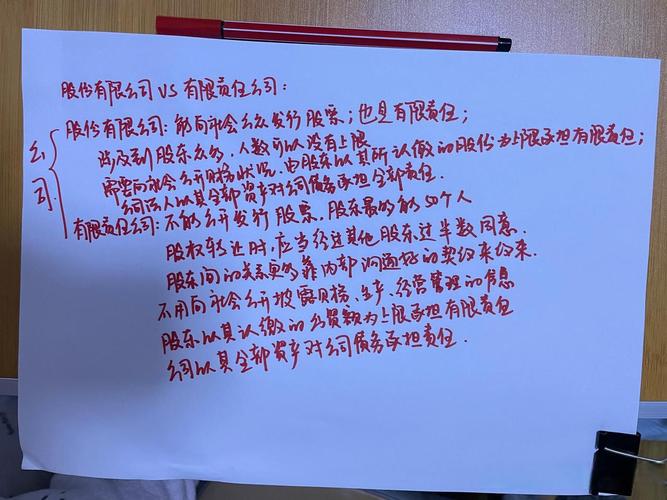 股份有限公司 VS 有限责任公司：
公司
股份有限公司：能向社会公众发行股票；也是有限责任；
涉及到股东众多，人数可以没有上限
需要向社会公开财务状况，由股东以其所认缴的股份为上限承担有限责任；
公司法人以其全部资产对公司债务承担全部责任．
有限责任公司：不能公开发行股票．股东最多能50个人
股权转让时，应当经过其他股东过半数同意．
股东间的关系更多靠内部沟通好的契约来约束．
不用向社会公开披露财务、生产、经营管理的信息
股东以其认缴的出资额为上限承担有限责任
公司以其全部资产对公司债务承担责任．